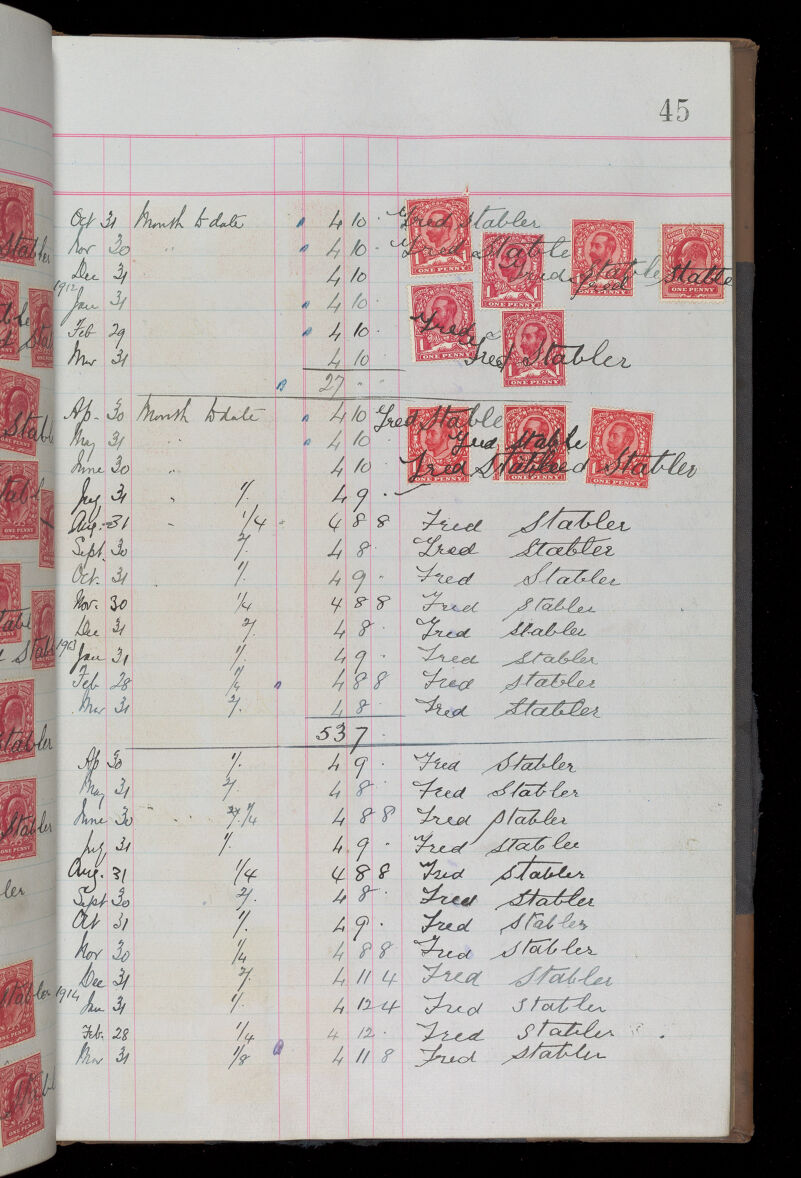 45
Oct 31 Month to date 4 10 . Fred Stabler
Nov 30 " 4 10 . Fred Stable
Dec 31 4 10 Fred Stable Stable
1912
Jan 31 4 10 .
Feb 29 4 10 . Fred
Mar 31 4 10 . Fred Stabler
27 . .
Ap. 30 Month to date 4 10 Fred Stable
May 31 " 4 10 . Fred Stable
June 30 " 4 10 . Fred Stabler
July 31 " 1/. 4 9 .
Aug. 31 " 1/4 4 8 8 Fred Stabler
Sept. 30 2/. 4 8 . Fred Stabler
Oct. 31 1/. 4 9 . Fred Stabler
Nov. 30 1/4 4 8 8 Fred Stabler
Dec 31 2/. 4 8 . Fred Stabler
1913
Jan 31 1/. 4 9 . Fred Stabler
Feb 28 1/4 4 8 8 Fred Stabler
Mar 31 2/. 4 8 . Fred Stabler
53 7 .
Ap 30 1/. 4 9 . Fred Stabler
May 31 2/. 4 8 . Fred Stabler
June 30 " " 1/4 4 8 8 Fred Stabler
July 31 1/. 4 9 . Fred Stabler
Aug. 31 1/4 4 8 8 Fred Stabler
Sept 30 2/. 4 8 . Fred Stabler
Oct 31 1/. 4 9 . Fred Stabler
Nov 30 1/4 4 8 8 Fred Stabler
Dec 31 2/. 4 11 4 Fred Stabler
1914
Jan 31 1/. 4 12 4 Fred Stabler
Feb. 28 1/4 4 12 . Fred Stabler
Mar 31 1/8 4 11 8 Fred Stabler
ONE PENNY
ONE PENNY
ONE PENNY
ONE PENNY
ONE PENNY
ONE PENNY
ONE PENNY
ONE PENNY
ONE PENNY